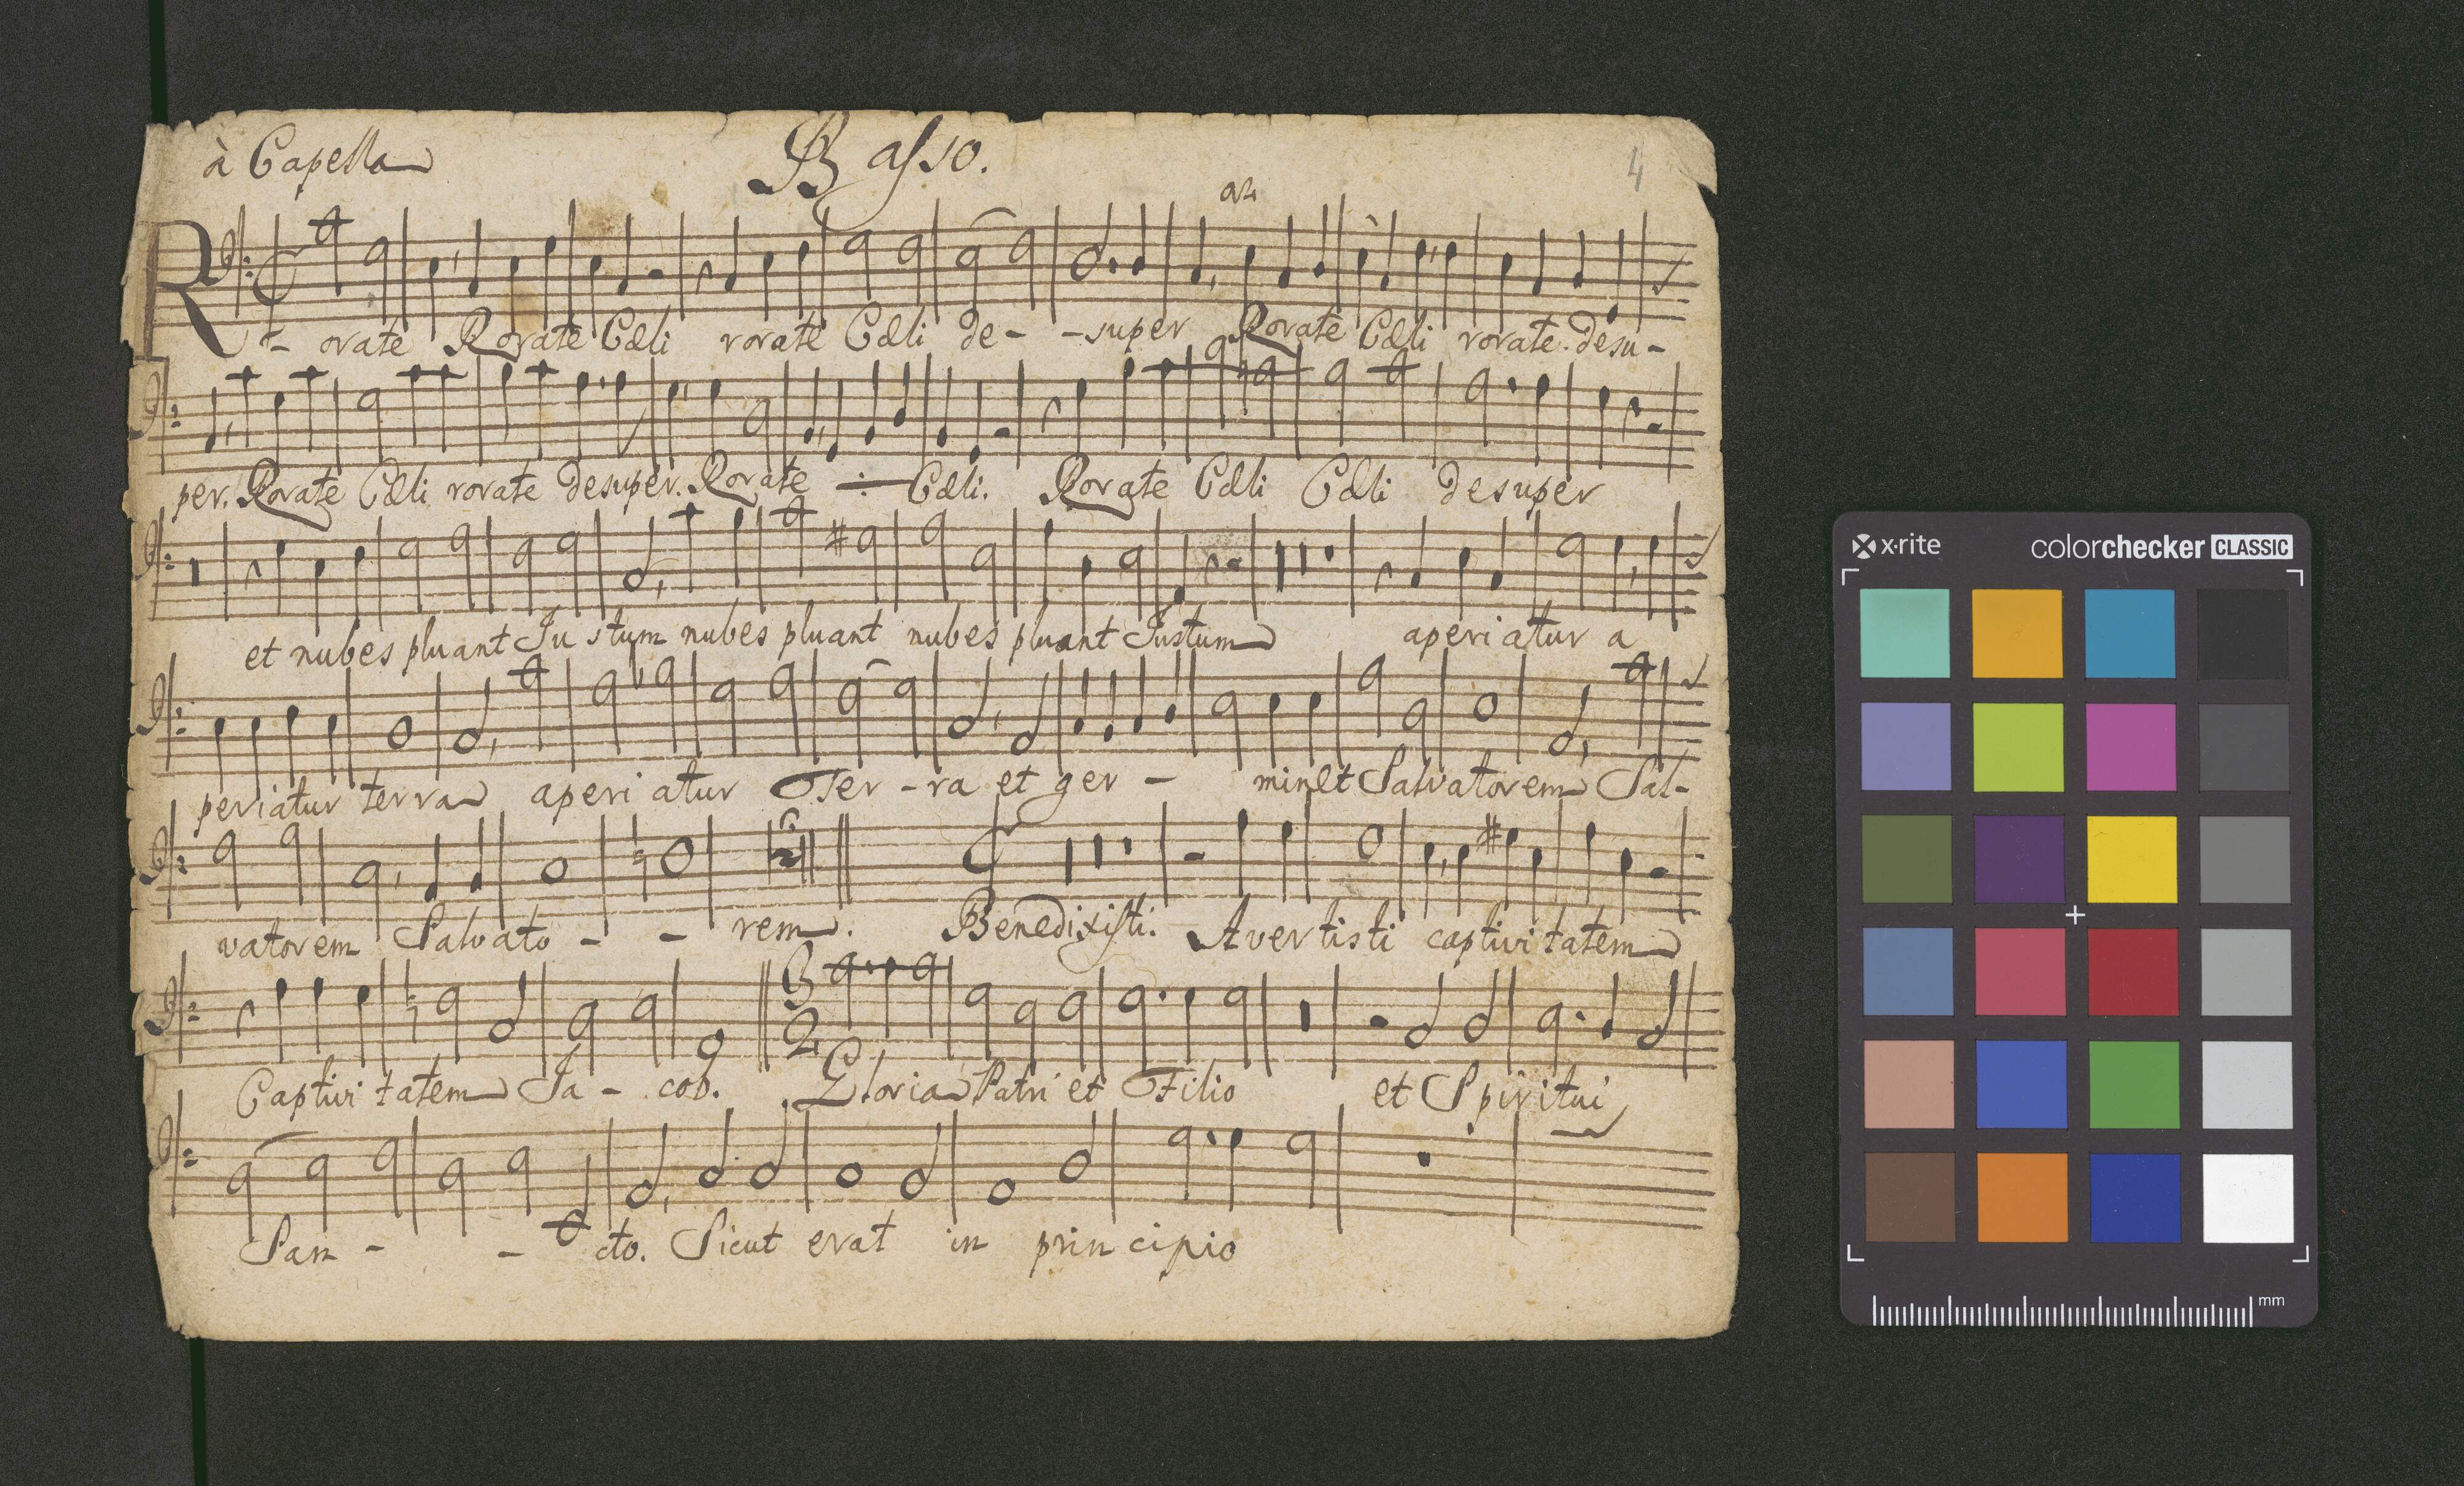 à Capella
Basso.
4
R - orate Rorate Cæli rorate Cæli de - - super Rorate Cæli rorate. desu -
per. Rorate Cæli rorate desuper. Rorate Cæli. Rorate Cæli Cæli desuper
et nubes pluant Justum nubes pluant nubes pluant Justum aperiatur a
periatur terra aperiatur Ter - ra et ger - minet Salvatorem Sal -
vatorem Salvato - - rem. Benedixisti. Avertisti captivitatem
Captivitatem Ja - cob. 3 2 Gloria Patri et Filio et Spiritui
San - - cto. Sicut erat in principio
x·rite
colorchecker CLASSIC
mm